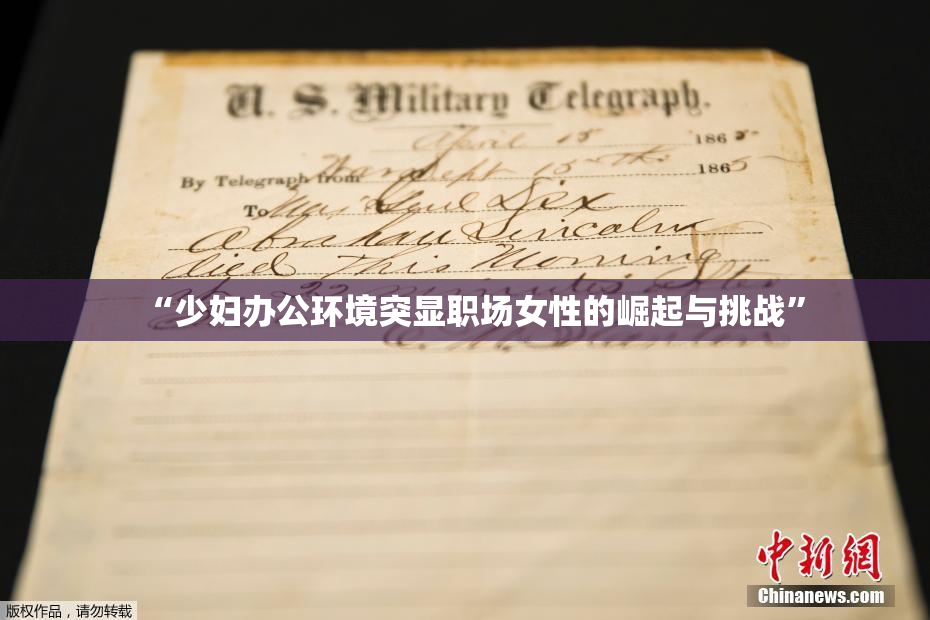 U. S. Military Telegraph.
April 15 1865
By Telegraph from War Dept 15th 1865
To Maj Genl Dix
Abraham Lincoln
died This Morning
at 22 minutes after
“少妇办公环境突显职场女性的崛起与挑战”
E. M. Stanton
中新網
Chinanews.com
版权作品，请勿转载